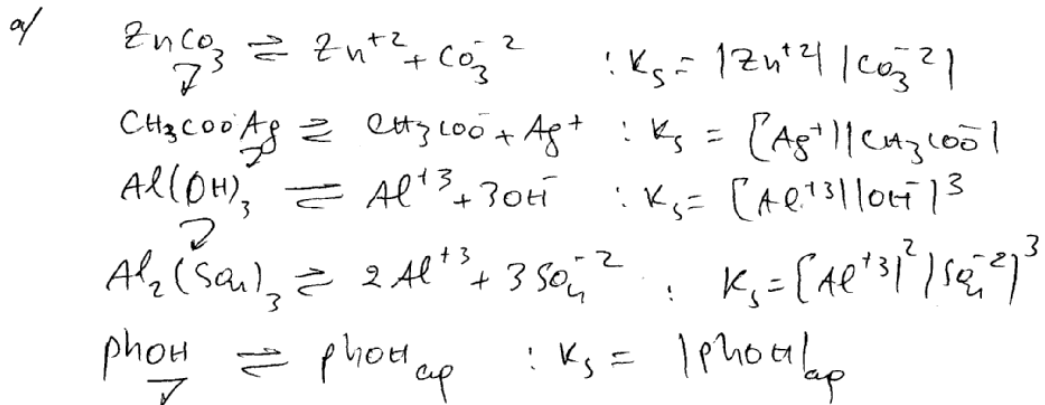 a/ ZnCO₃ ⇌ Zn⁺² + CO₃⁻² : Ks = |Zn⁺²| |CO₃⁻²|
CH₃COOAg ⇌ CH₃COO⁻ + Ag⁺ : Ks = [Ag⁺||CH₃COO⁻|
Al(OH)₃ ⇌ Al⁺³ + 3OH⁻ : Ks = [Al⁺³||OH⁻]³
Al₂(SO₄)₃ ⇌ 2Al⁺³ + 3SO₄⁻² : Ks = [Al⁺³|² |SO₄⁻²)³
phOH ⇌ phOH ap : Ks = |phOH|ap